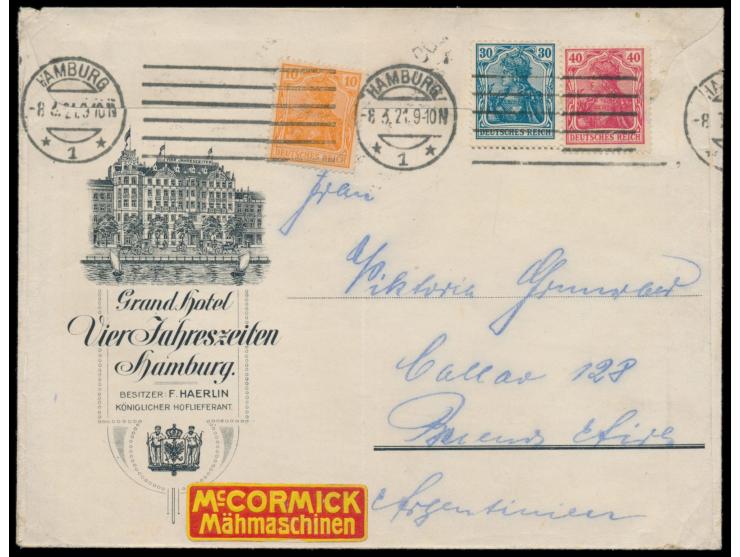 HAMBURG
-8.3.21.9-10N
* 1 *
10 10
DEUTSCHES REICH
HAMBURG
-8.3.21.9-10N
* 1 *
30 30
DEUTSCHES REICH
40 40
DEUTSCHES REICH
HAMBURG
-8.3
1
Frau
Viktoria
Callao 128
Buenos Aires
Argentinien
Grand Hotel
Vier Jahreszeiten
Hamburg.
BESITZER: F. HAERLIN
KÖNIGLICHER HOFLIEFERANT.
McCORMICK
Mähmaschinen